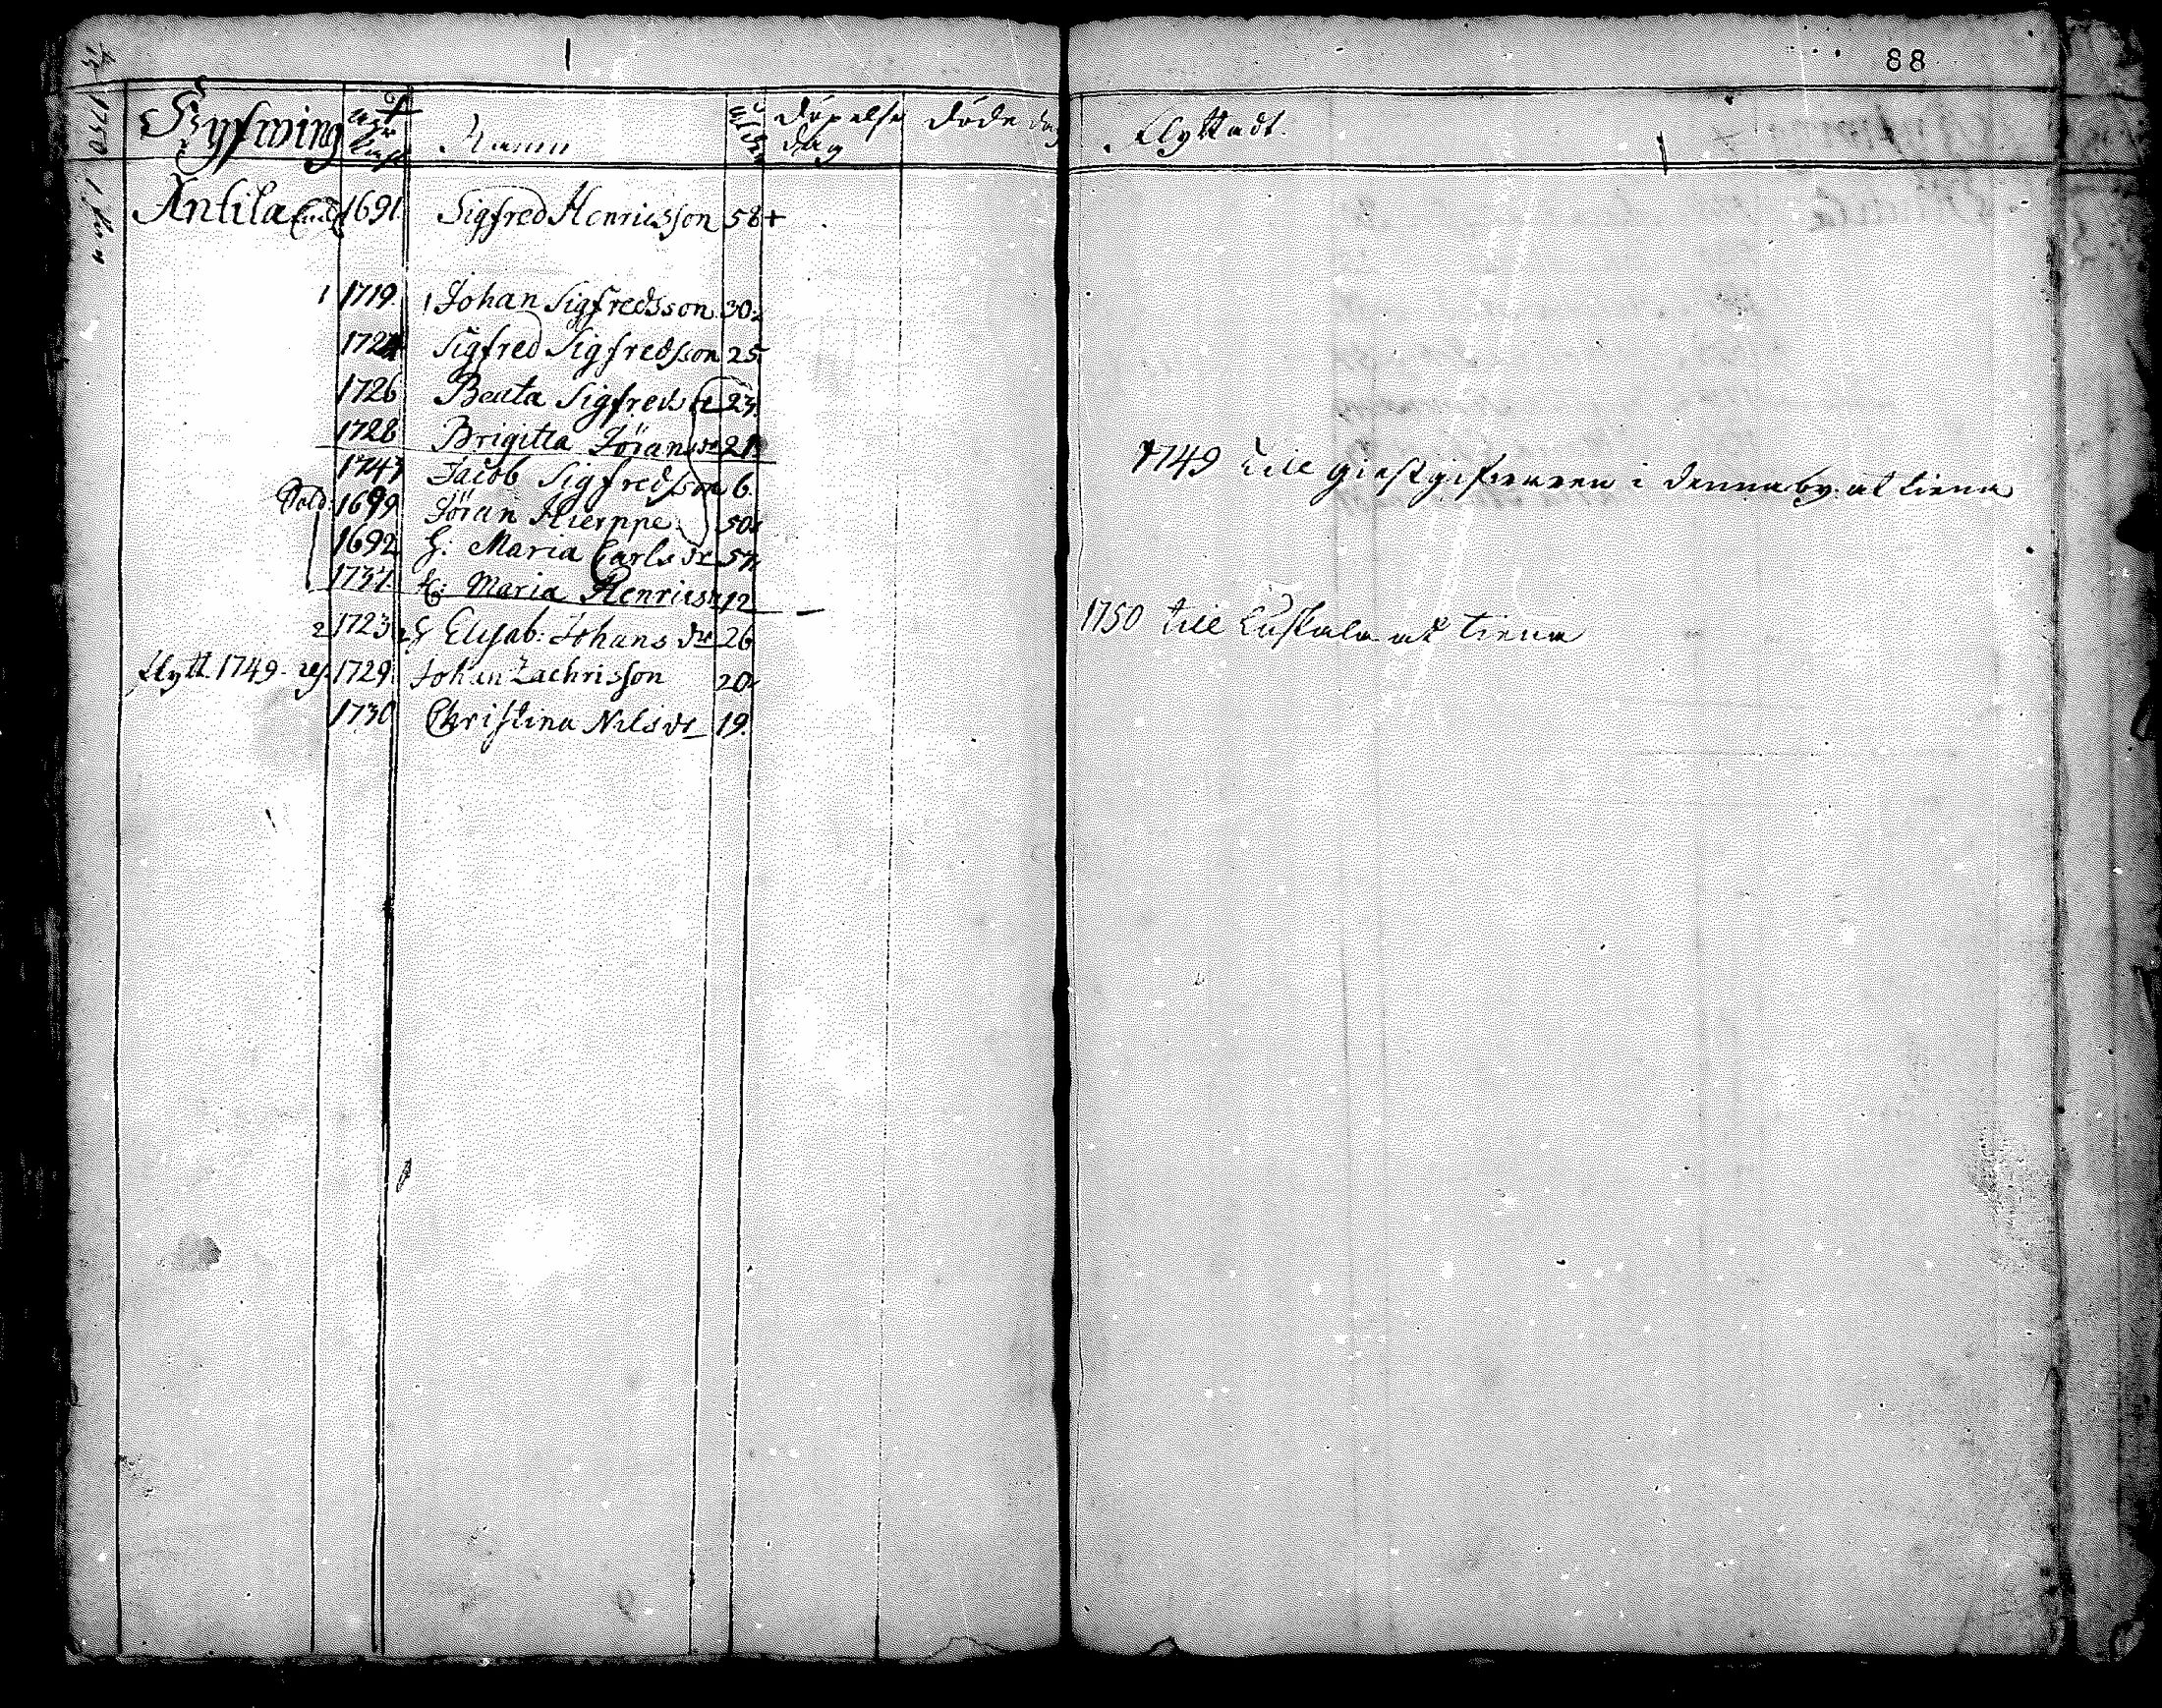 1 88
Namn Döpelse dag Döde dag Flyttadt.
Antila 1691 Sigfred Henricsson 58 +
1 1719 1 Johan Sigfredsson 30
1724 Sigfred Sigfredsson 25
1726 Beata Sigfreds dr 23
1728 Brigitta Jörans dr 21 1749 till giästgifwaren i denna by at tiena
1743 Jacob Sigfredsson 6
Sold. 1699 Jöran Hierppe 50
1692 H: Maria Carls dr 57
1737 Maria Henrics 12
2 1723 2 H Elisab: Johans dr 26 1750 till at tiena
Flytt 1749 1729 Johan Zachrisson 20
1730 Christina Nils dr 19
1750